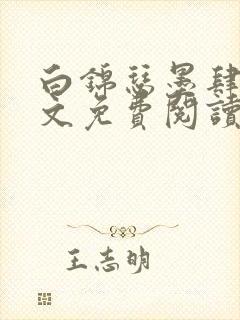 白錦瑟墨肆
文免費閱讀
王志明